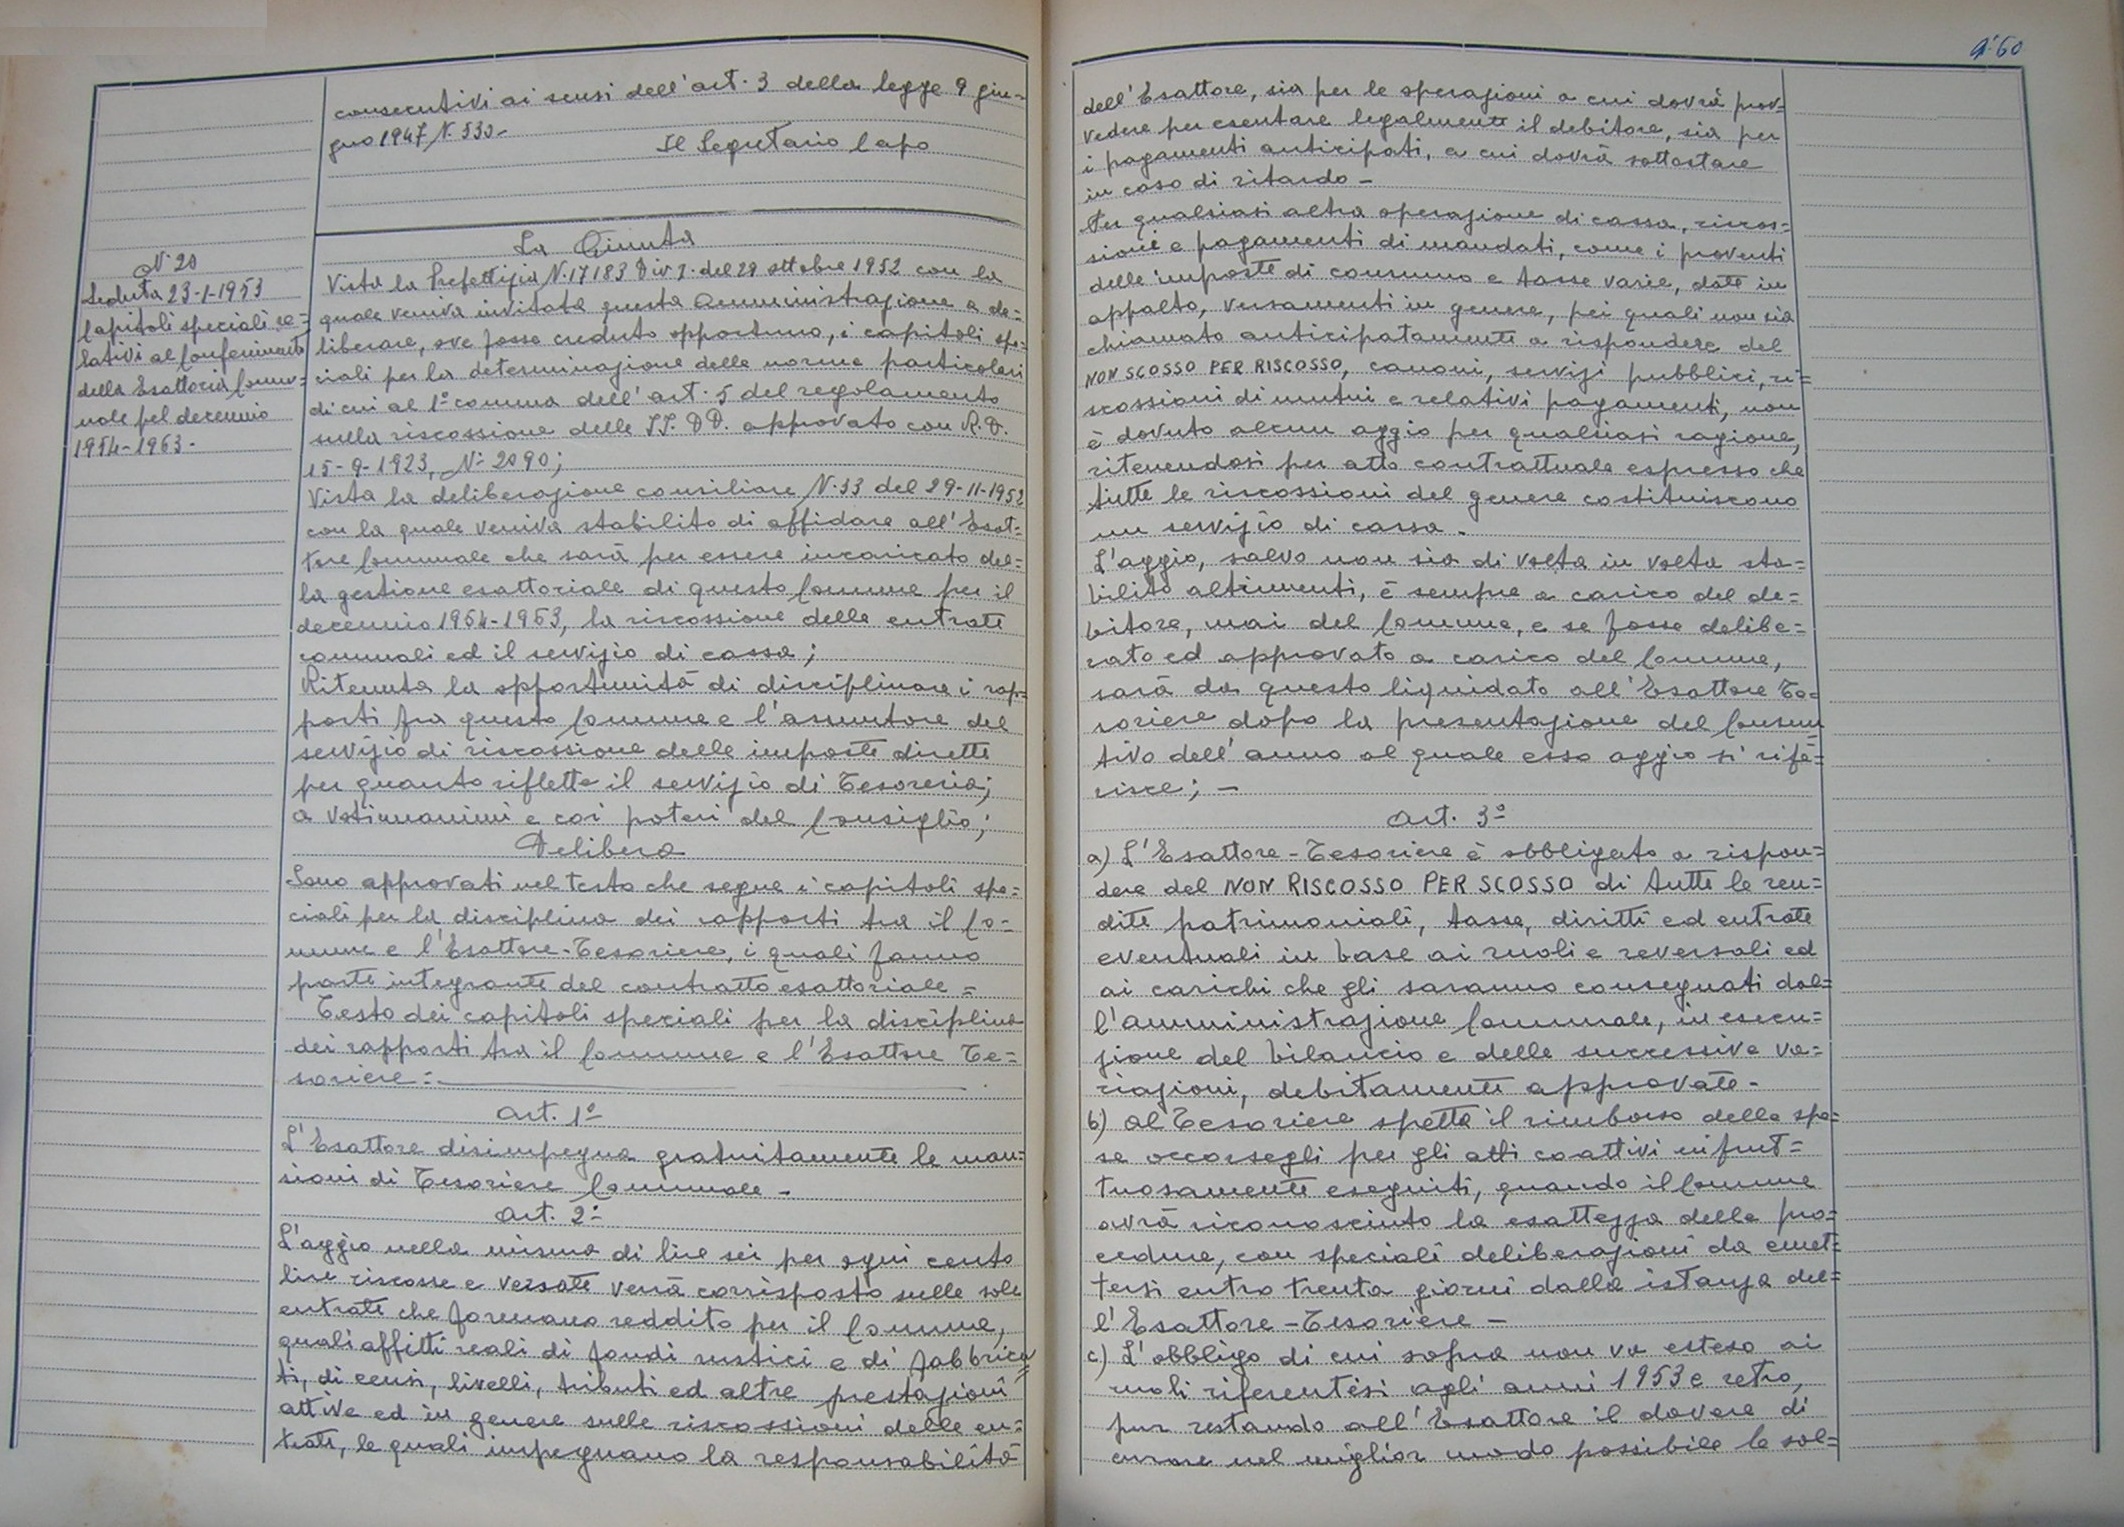 consecutivi ai sensi dell'art. 3 della legge 9 giu-
gno 1947 N. 530-
Il Segretario Capo
N. 20
Seduta 23-1-1953
Capitoli speciali re=
lativi al Conferimento
della Esattoria Comu=
nale pel decennio
1954-1963-
La Giunta
Vista la Prefettizia N. 17183 Div. 2. del 29 ottobre 1952 con la
quale veniva invitata questa Amministrazione a de=
liberare, ove fosse creduto opportuno, i capitoli spe=
ciali per la determinazione delle norme particolari
di cui al 1° comma dell'art. 5 del regolamento
sulla riscossione delle II. DD. approvato con R.D.
15-9-1923, N: 2090;
Vista la deliberazione consiliare N. 33 del 29-11-1952
con la quale veniva stabilito di affidare all'Esat=
tore Comunale che sarà per essere incaricato del=
la gestione esattoriale di questo Comune per il
decennio 1954-1963, la riscossione delle entrate
comunali ed il servizio di cassa;
Ritenuta la opportunità di disciplinare i rap=
porti fra questo Comune e l'assuntore del
servizio di riscossione delle imposte dirette
per quanto riflette il servizio di Tesoreria;
a voti unanimi e coi poteri del Consiglio;
Delibera
Sono approvati nel testo che segue i capitoli spe=
ciali per la disciplina dei rapporti tra il Co=
mune e l'Esattore-Tesoriere, i quali fanno
parte integrante del contratto esattoriale =
Testo dei capitoli speciali per la disciplina
dei rapporti tra il Comune e l'Esattore Te=
soriere:
Art. 1°
L'Esattore disimpegna gratuitamente le man=
sioni di Tesoriere Comunale -
Art. 2°
L'aggio nella misura di lire sei per ogni cento
lire riscosse e versate verrà corrisposto sulle sole
entrate che formano reddito per il Comune,
quali affitti reali di fondi rustici e di fabbrica=
ti, di censi, livelli, tributi ed altre prestazioni
attive ed in genere sulle riscossioni delle en=
trate, le quali impegnano la responsabilità
60
dell'Esattore, sia per le operazioni a cui dovrà prov=
vedere per esentare legalmente il debitore, sia per
i pagamenti anticipati, a cui dovrà sottostare
in caso di ritardo -
Per qualsiasi altra operazione di cassa, riscos=
sioni e pagamenti di mandati, come i proventi
delle imposte di consumo e tasse varie, date in
appalto, versamenti in genere, pei quali non sia
chiamato anticipatamente a rispondere del
NON SCOSSO PER RISCOSSO, canoni, servizi pubblici, ri=
scossioni di mutui e relativi pagamenti, non
è dovuto alcun aggio per qualsiasi ragione,
ritenendosi per atto contrattuale espresso che
tutte le riscossioni del genere costituiscono
un servizio di cassa -
L'aggio, salvo non sia di volta in volta sta=
bilito altrimenti, è sempre a carico del de=
bitore, mai del Comune, e se fosse delibe=
rato ed approvato a carico del Comune,
sarà da questo liquidato all'Esattore Te=
soriere dopo la presentazione del Consun
tivo dell'anno al quale esso aggio si rife=
risce; -
Art. 3°
a) L'Esattore-Tesoriere è obbligato a rispon=
dere del NON RISCOSSO PER SCOSSO di tutte le ren=
dite patrimoniali, tasse, diritti ed entrate
eventuali in base ai ruoli e reversali ed
ai carichi che gli saranno consegnati dal=
l'amministrazione Comunale, in esecu=
zione del bilancio e delle successive va=
riazioni, debitamente approvate -
b) Al Tesoriere spetta il rimborso delle spe=
se occorsegli per gli atti coattivi infrut=
tuosamente eseguiti, quando il Comune
avrà riconosciuto la esattezza delle pro=
cedure, con speciali deliberazioni da emet=
tersi entro trenta giorni dalla istanza del=
l'Esattore-Tesoriere -
c) L'obbligo di cui sopra non va esteso ai
ruoli riferentesi agli anni 1953 e retro,
pur restando all'Esattore il dovere di
curare nel miglior modo possibile la sol=